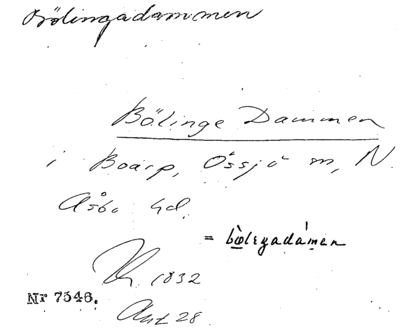 Bölingadammen
Bölinge Dammen
i Boarp, Össjö sn, N.
Åsbo hd.
= bölegadámen
1832
Nr 7546.
Akt 28